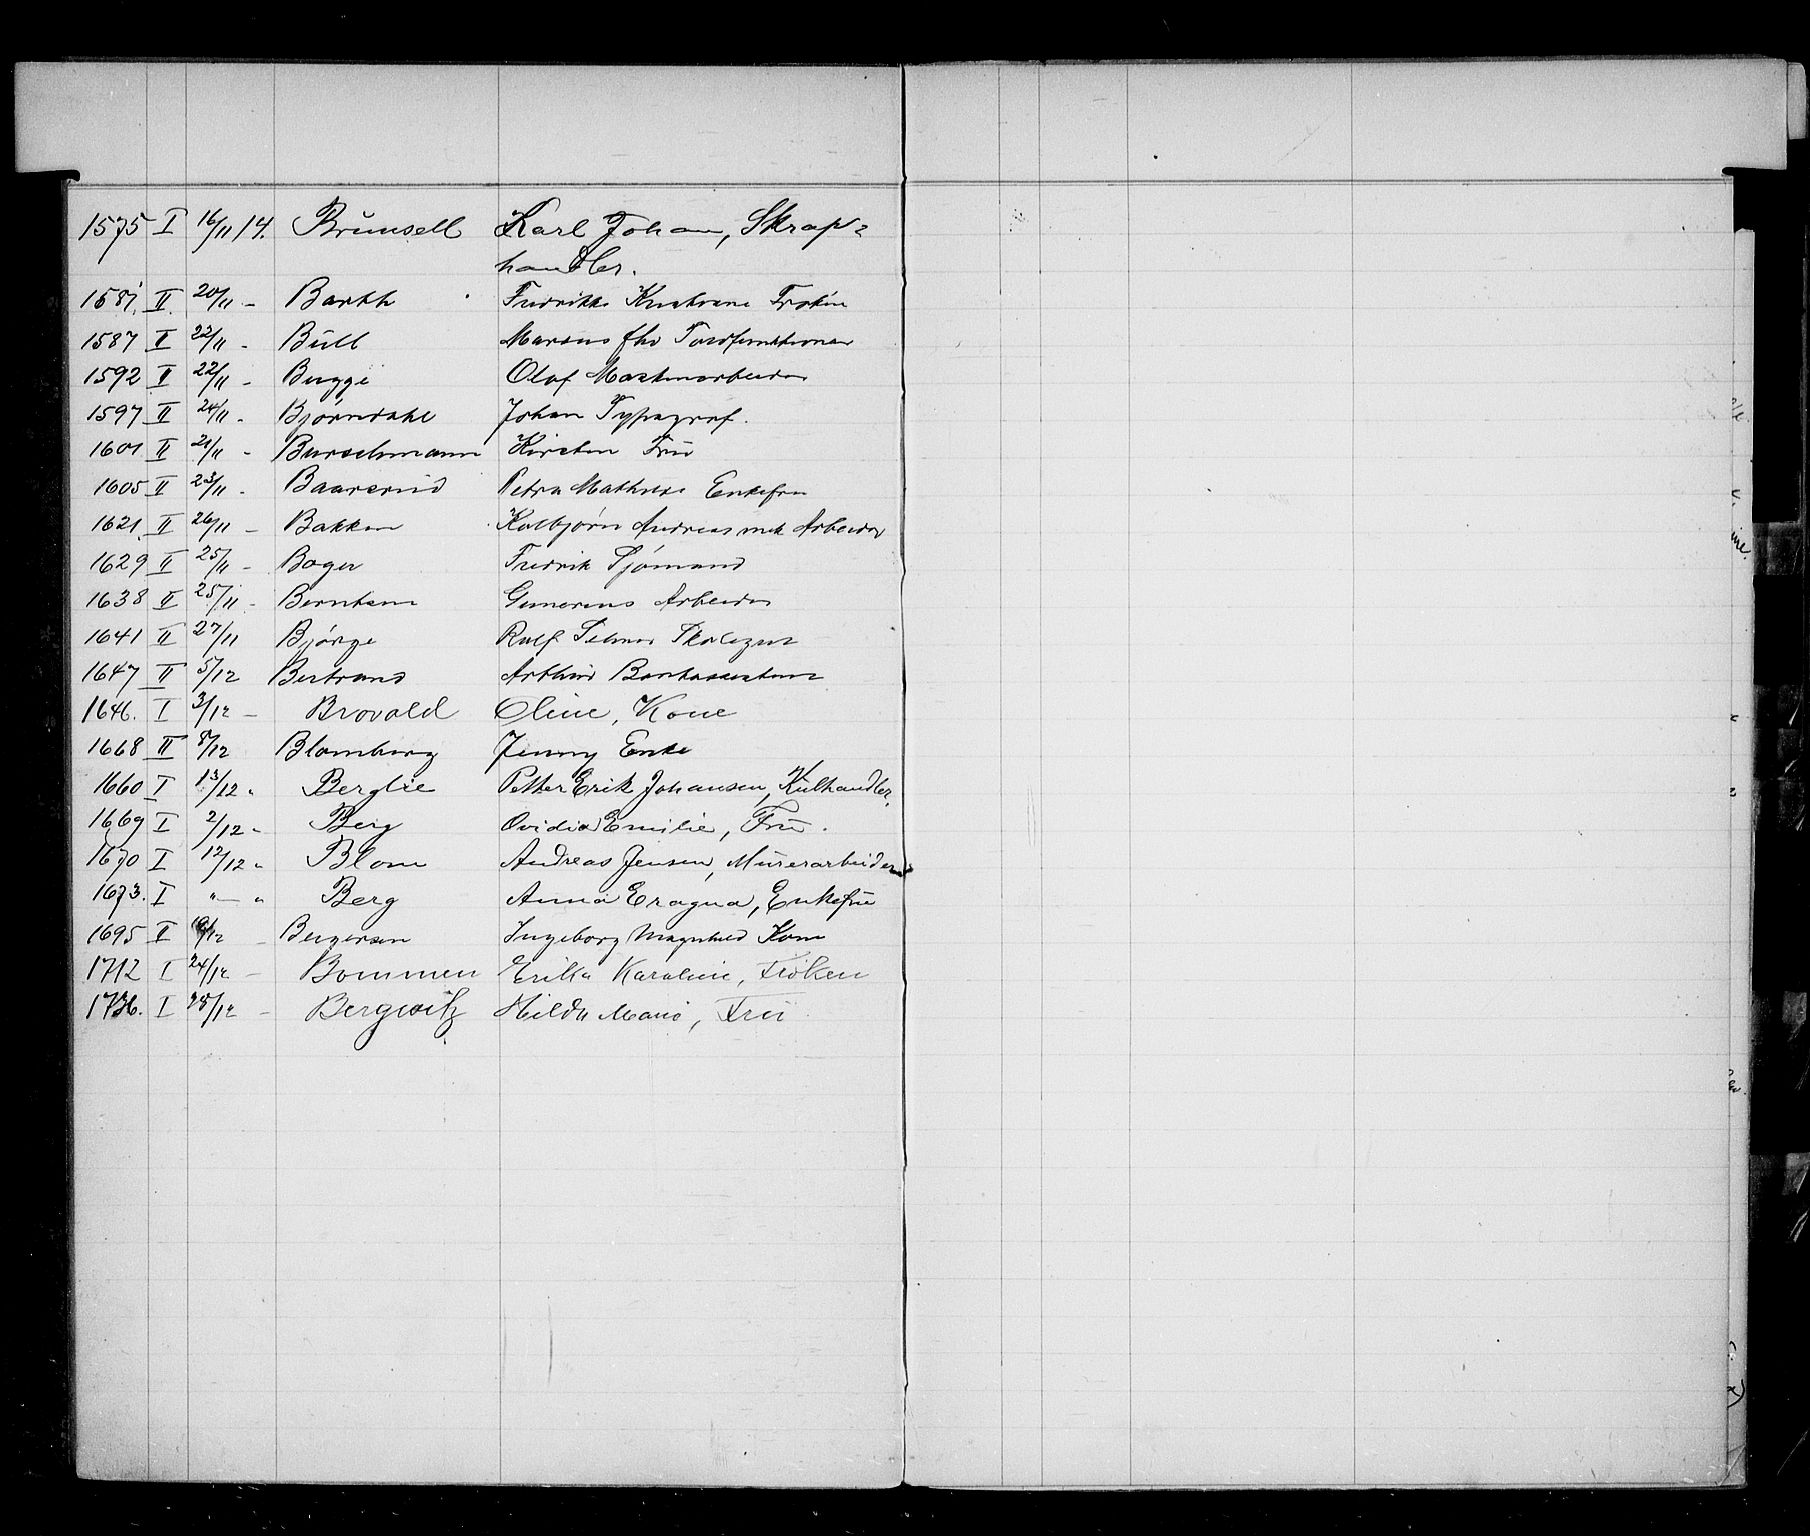 1575 I 16/11 14. Brunsell Karl Johan, Skrap=
handler.
1581. II. 20/11 - Barth Fredrikke Kristiane Frøken
1587 II 22/11 - Bull Marcus fhv Toldfunktionær
1592 II 22/11 - Bugge Olaf Maskinarbeider
1597 II 24/11 - Bjørndahl Johan Typograf.
1601 II 21/11 - Burschmann Kirsten Fru
1605 II 23/11 - Baarsrud Petra Mathilde Enkefru
1621. II 26/11 - Bakken Kolbjørn Andreas mek Arbeider
1629 II 25/11 - Boger Fredrik Sjømand
1638 II 25/11 - Berntsen Gunerius Arbeider
1641 II 27/11 Bjørge Rolf Skolegut
1647 II 5/12 Bertrand Arthur Bankassistent
1646. I 3/12 - Brovold Oline, Kone
1668 II 8/12 Blomberg Jenny Enke
1660 I 13/12 " Berglie Petter Erik Johansen, Kulhandler.
1669 I 2/12 - Berg Ovidia Emilie, Fru.
1670 I 12/12 " Blom Andreas Jensen, Murerarbeider
1673. I "—" Berg Anna Eragna, Enkefru
1695 II 19/12 - Bergersen Ingeborg Magnhild Kone
1712 I 24/12 - Bommen Erika Karoline, Frøken
1736. I 28/12 - Bergwitz Hilda Marie, Fru